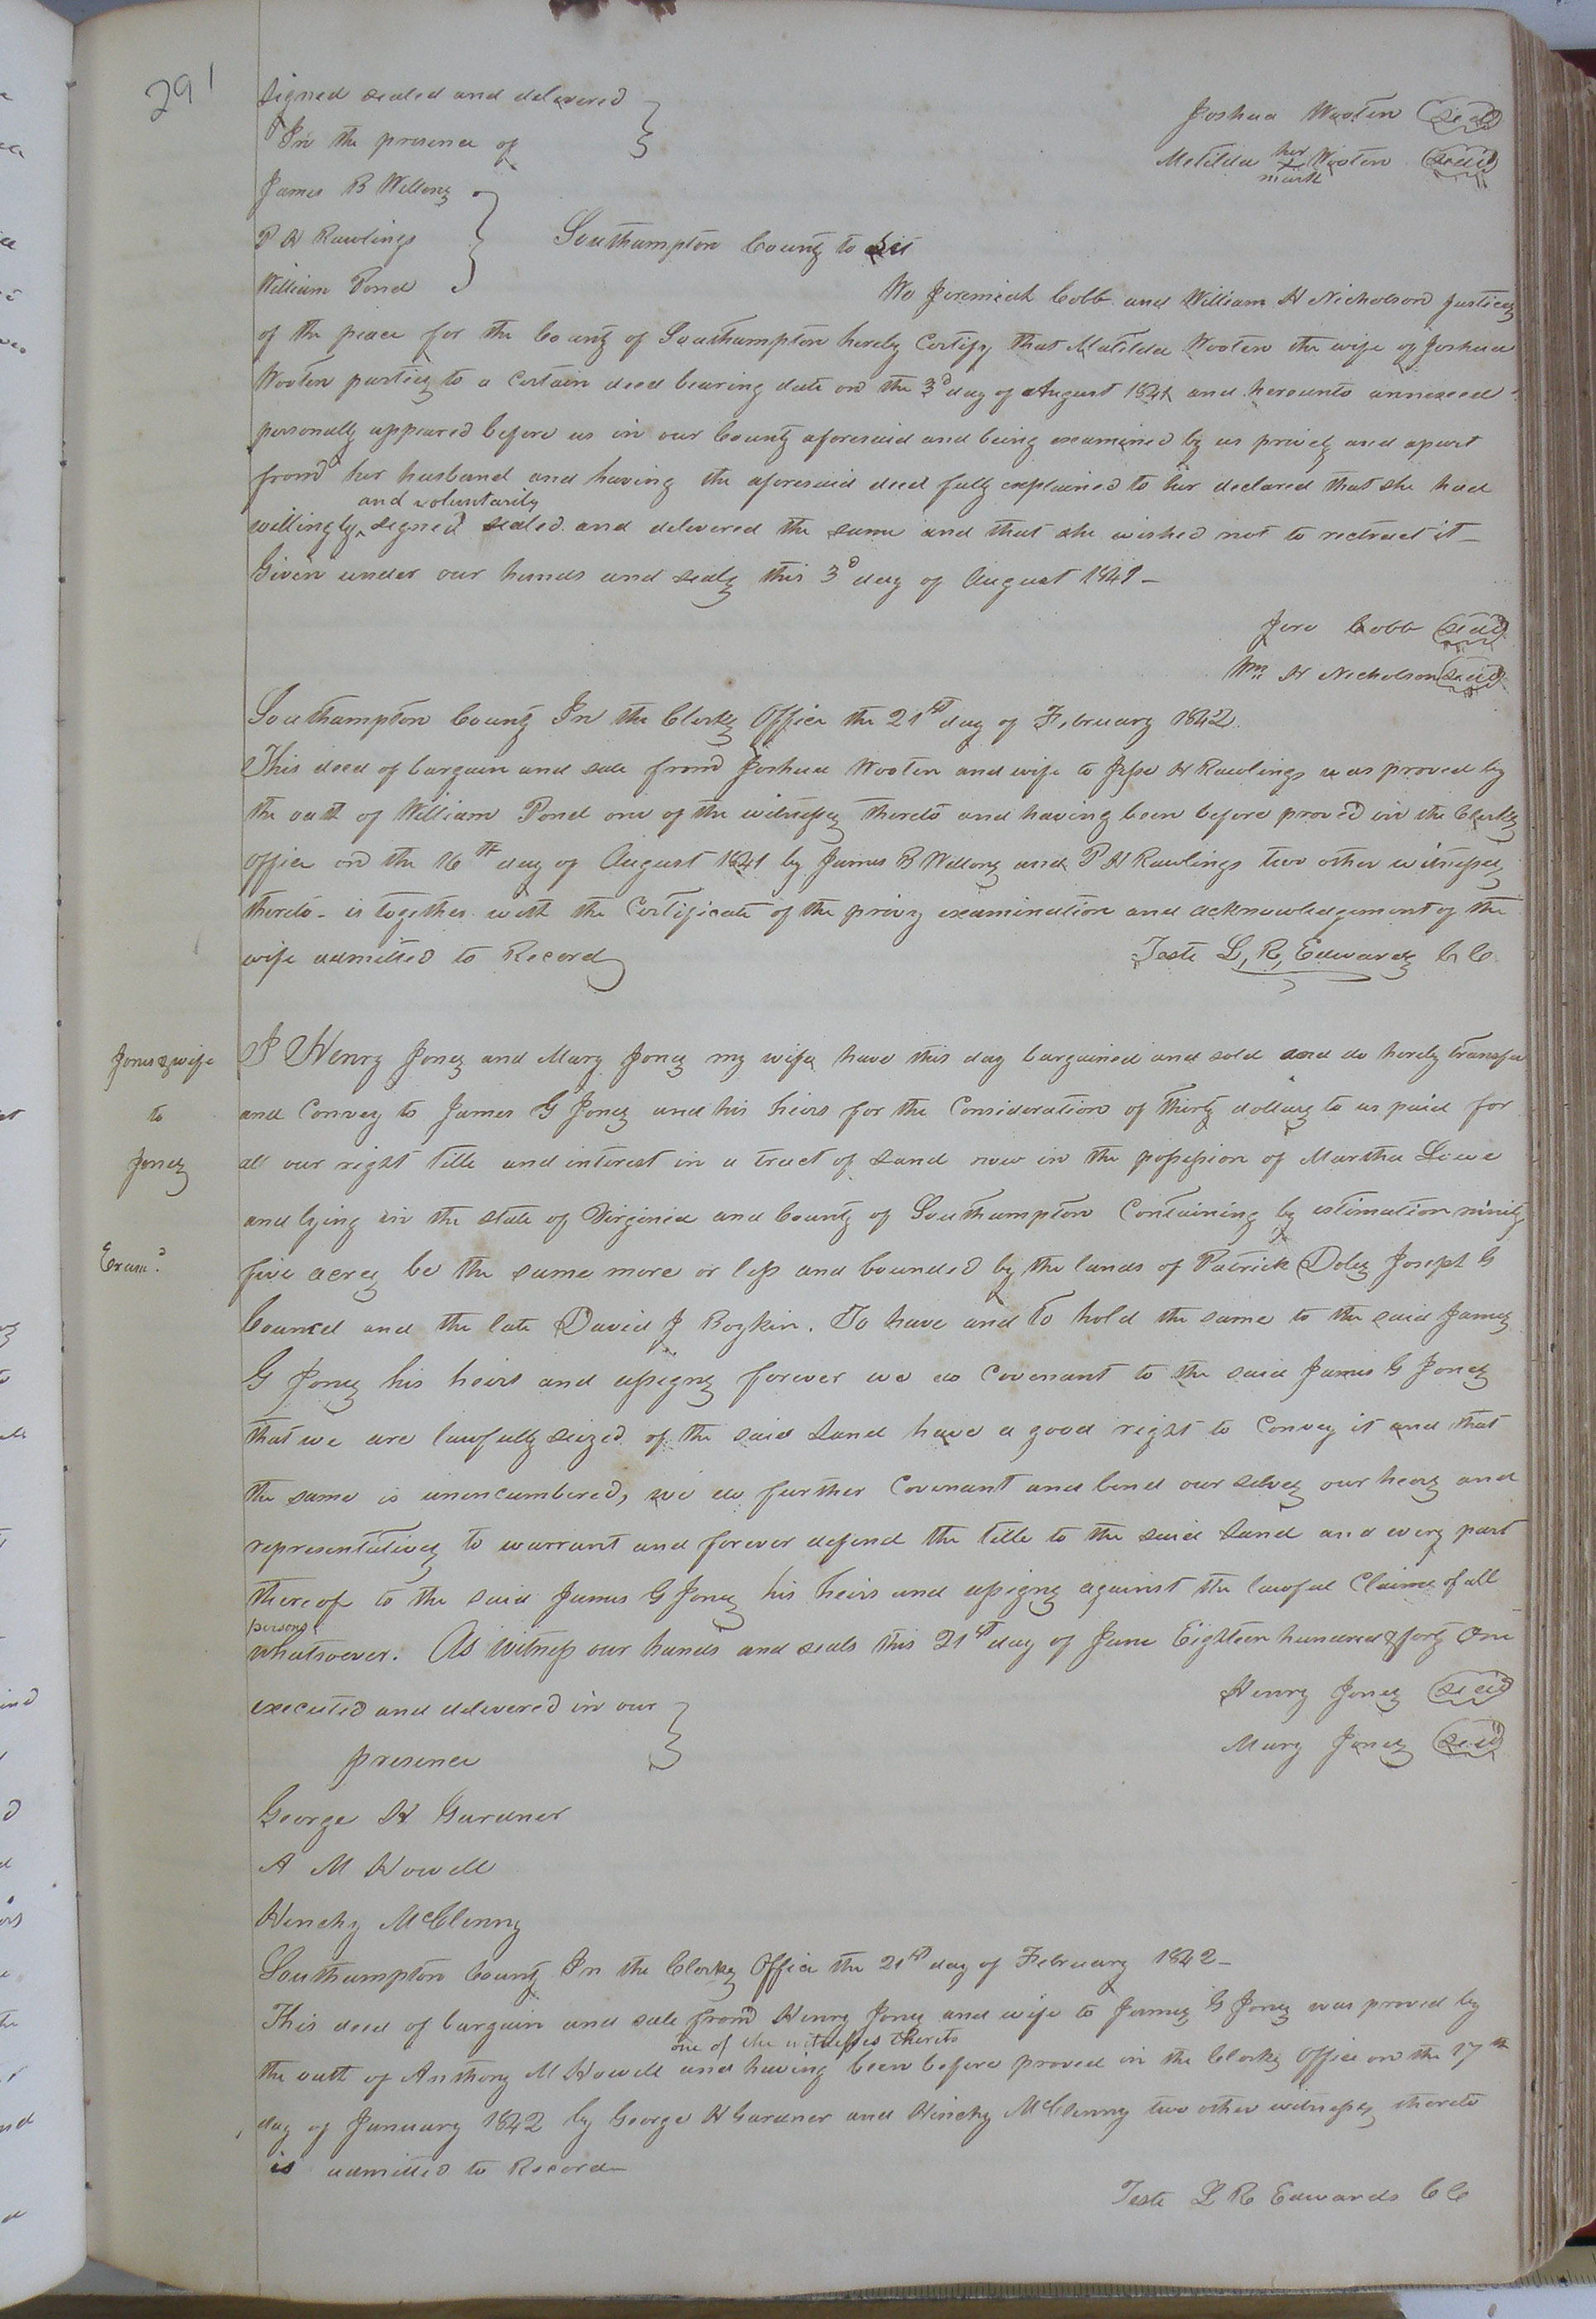 291
Signed sealed and delivered
In the presence of
Joshua Wooten seal
Matilda her x mark Wooten seal
James B Wellons
P H Rawlings
William Pond
Southampton County to wit
We Jeremiah Cobb and William H Nicholson justices
of the peace for the County of Southampton hereby Certify that Matilda Wooten the wife of Joshua
Wooten parties to a certain deed bearing date on the 3d day of August 1841 and hereunto annexed
personally appeared before us in our County aforesaid and being examined by us privily and apart
from her husband and having the aforesaid deed fully explained to her declared that she had
willingly and voluntarily signed sealed and delivered the same and that she wished not to retract it -
Given under our hands and seals this 3d day of August 1841 -
Jere Cobb seal
Wm H Nicholson seal
Southampton County In the Clerks Office the 21st day of February 1842
This deed of bargain and sale from Joshua Wooten and wife to Jesse H Rawlings was proved by
the oath of William Pond one of the witnesses thereto and having been before proved in the Clerks
office on the 16th day of August 1841 by James B Wellons and P H Rawlings two other witnesses
thereto - is together with the Certificate of the privy examination and acknowledgement of the
wife admitted to Record
Teste L, R, Edwards C C
Jones & wife
to
Jones
Exam.d
I Henry Jones and Mary Jones my wife have this day bargained and sold and do hereby transfer
and Convey to James G Jones and his heirs for the Consideration of thirty dollars to us paid for
all our right title and interest in a tract of Land now in the possession of Martha Lowe
and lying in the state of Virginia and County of Southampton Containing by estimation ninity
five acres be the same more or less and bounded by the lands of Patrick Doles Joseph G
Council and the late David J Boykin. To have and to hold the same to the said James
G Jones his heirs and assigns forever we do Covenant to the said James G Jones
that we are lawfully seized of the said Land have a good right to Convey it and that
the same is unencumbered, we do further Covenant and bind our selves our heirs and
representatives to warrant and forever defend the title to the said Land and every part
thereof to the said James G Jones his heirs and assigns against the lawful Claims of all
persons whatsoever. As witness our hands and seals this 21st day of June Eighteen hundred & forty One
executed and delivered in our
presence
Henry Jones seal
Mary Jones seal
George H Gardner
A M Howell
Hinchy McClenny
Southampton County In the Clerks Office the 21st day of February 1842 -
This deed of bargain and sale from Henry Jones and wife to James G Jones was proved by
the oath of Anthony M Howell one of the witnesses thereto and having been before proved in the Clerks Office on the 17th
day of January 1842 by George H Gardner and Hinchy McClenny two other witnesses thereto
is admitted to Record -
Teste L R Edwards C C